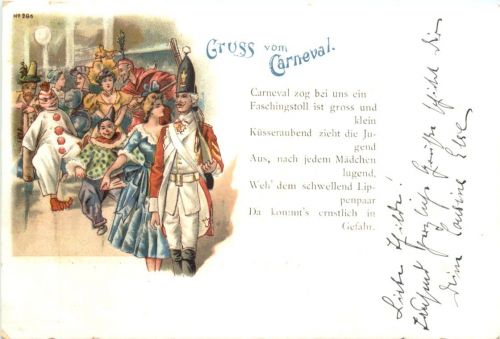 No 286
Gruss vom
Carneval.
Carneval zog bei uns ein
Faschingstoll ist gross und
klein
Küsseraubend zieht die Ju-
gend
Aus, nach jedem Mädchen
lugend,
Weh' dem schwellend Lip-
penpaar
Da kommt's ernstlich in
Gefahr.
Liebe Hilde!
Tausend herzliche Grüße schickt Dir
Deine Cousine Else